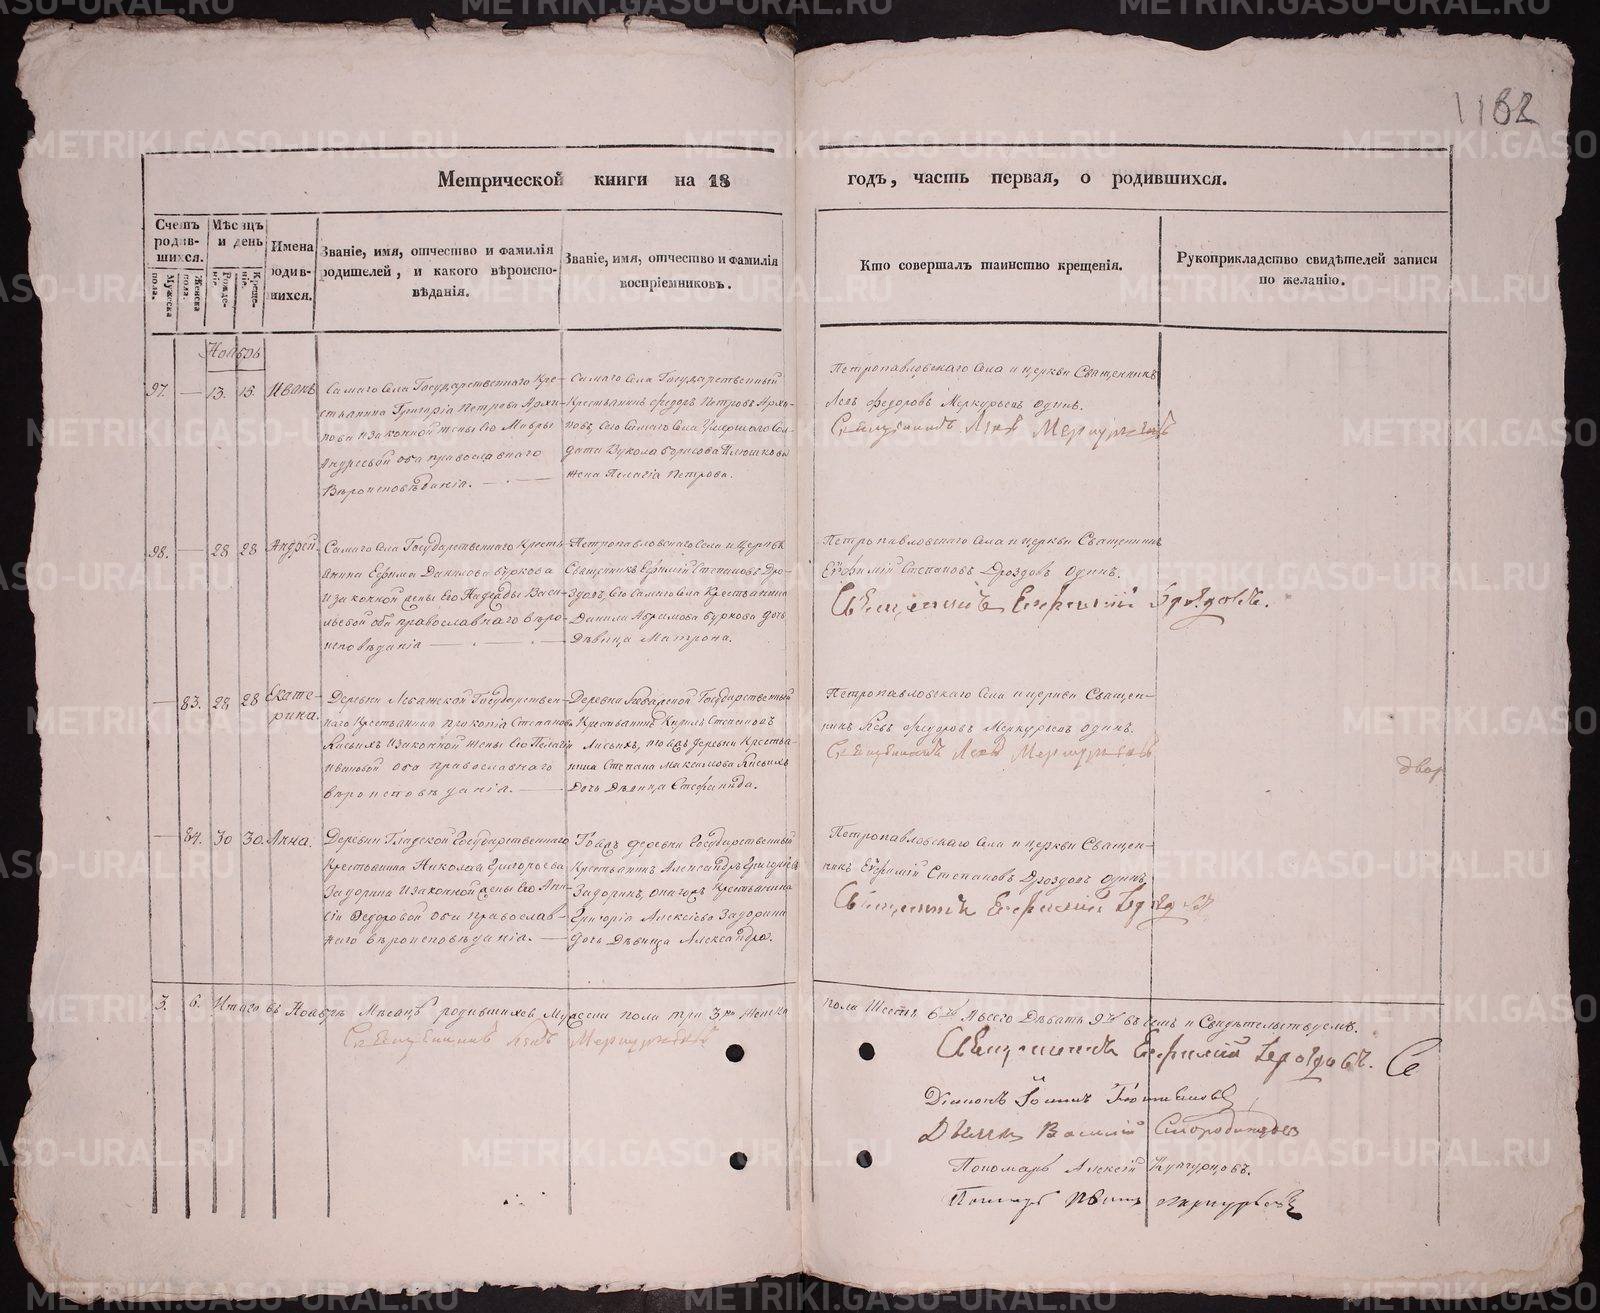 1182
Метрической книги на 18
годъ, часть первая, о родившихся.
Счетъ родившихся.
Мужеска пола.
Женска пола.
Мѣсяцъ и день
Рожденіе.
Крещеніе.
Имена родившихся.
Званіе, имя, отчество и фамилія
родителей, и какого вѣроиспо-
вѣданія.
Званіе, имя, отчество и фамилія
воспріемниковъ.
Кто совершалъ таинство крещенія.
Рукоприкладство свидѣтелей записи
по желанію.
Ноябрь
97. — 13. 15. Иванъ
Самаго Села Государственнаго Кре-
стьянина Григорія Петрова Архи-
пова и законной жены его Мавры
Андреевой оба православнаго
Вѣроисповѣданія. — . —
Самаго Села Государственный
Крестьянинъ Федоръ Петровъ Архи-
повъ, Сего Самаго Села Умершаго Сол-
дата Вукола Борисова
жена Пелагія Петрова.
Петропавловскаго Села и церкви Священникъ
Левъ Федоровъ Меркурьевъ одинъ.
Священникъ Левъ Меркурьевъ
98. — 28 28 Андрей.
Самаго Села Государственнаго Кресть-
янина Ефима Данилова Буркова
и законной жены его Надежды Васи-
льевой оба православнаго вѣро-
исповѣданія — . —
Петропавловскаго Села и Церкви
Священникъ Ефимій Степановъ Дро-
здовъ, Сего Самаго Села Крестьянина
Данила Абрамова Буркова дочь
Дѣвица Матрона.
Петропавловскаго Села и церкви Священникъ
Ефимій Степановъ Дроздовъ одинъ.
Священникъ Ефимій Дроздовъ.
— 83. 28 28 Екате-
рина.
Деревни Государствен-
наго Крестьянина Прокопія Степанова
и законной жены его Пелагіи
Ивановой оба православнаго
вѣроисповѣданія. —
Деревни Государственный
Крестьянинъ Кирилъ Степановъ
тоя же деревни Кресть-
янина Степана Максимова
Дочь Дѣвица Стефанида.
Петропавловскаго Села и церкви Священ-
никъ Левъ Федоровъ Меркурьевъ одинъ.
Священникъ Левъ Меркурьевъ
двор
— 84. 30 30. Анна.
Деревни Гладской Государственнаго
Крестьянина Николая Григорьева
Задорина и законной жены его Ани-
сіи Федоровой оба православ-
наго вѣроисповѣданія. —
Тояже деревни Государственный
Крестьянинъ Александръ Григорьевъ
Задоринъ, Крестьянина
Григорія Алексіева Задорина
дочь Дѣвица Александра.
Петропавловскаго Села и церкви Священ-
никъ Ефимій Степановъ Дроздовъ одинъ.
Священникъ Ефимій Дроздовъ
3. 6. Итого въ Ноябрѣ Мѣсяцѣ родившихся Мужеска пола три 3 Женска
пола Шесть 6 Авсего Дѣвять 9 въ чемъ и Свидѣтельствуемъ.
Священникъ Левъ Меркурьевъ
Священникъ Ефимій Дроздовъ.
Діаконъ Іоаннъ
Василій Смородинцовъ
Пономарь Алексій
Пономарь Иванъ Меркурьевъ
METRIKI.GASO-URAL.RU